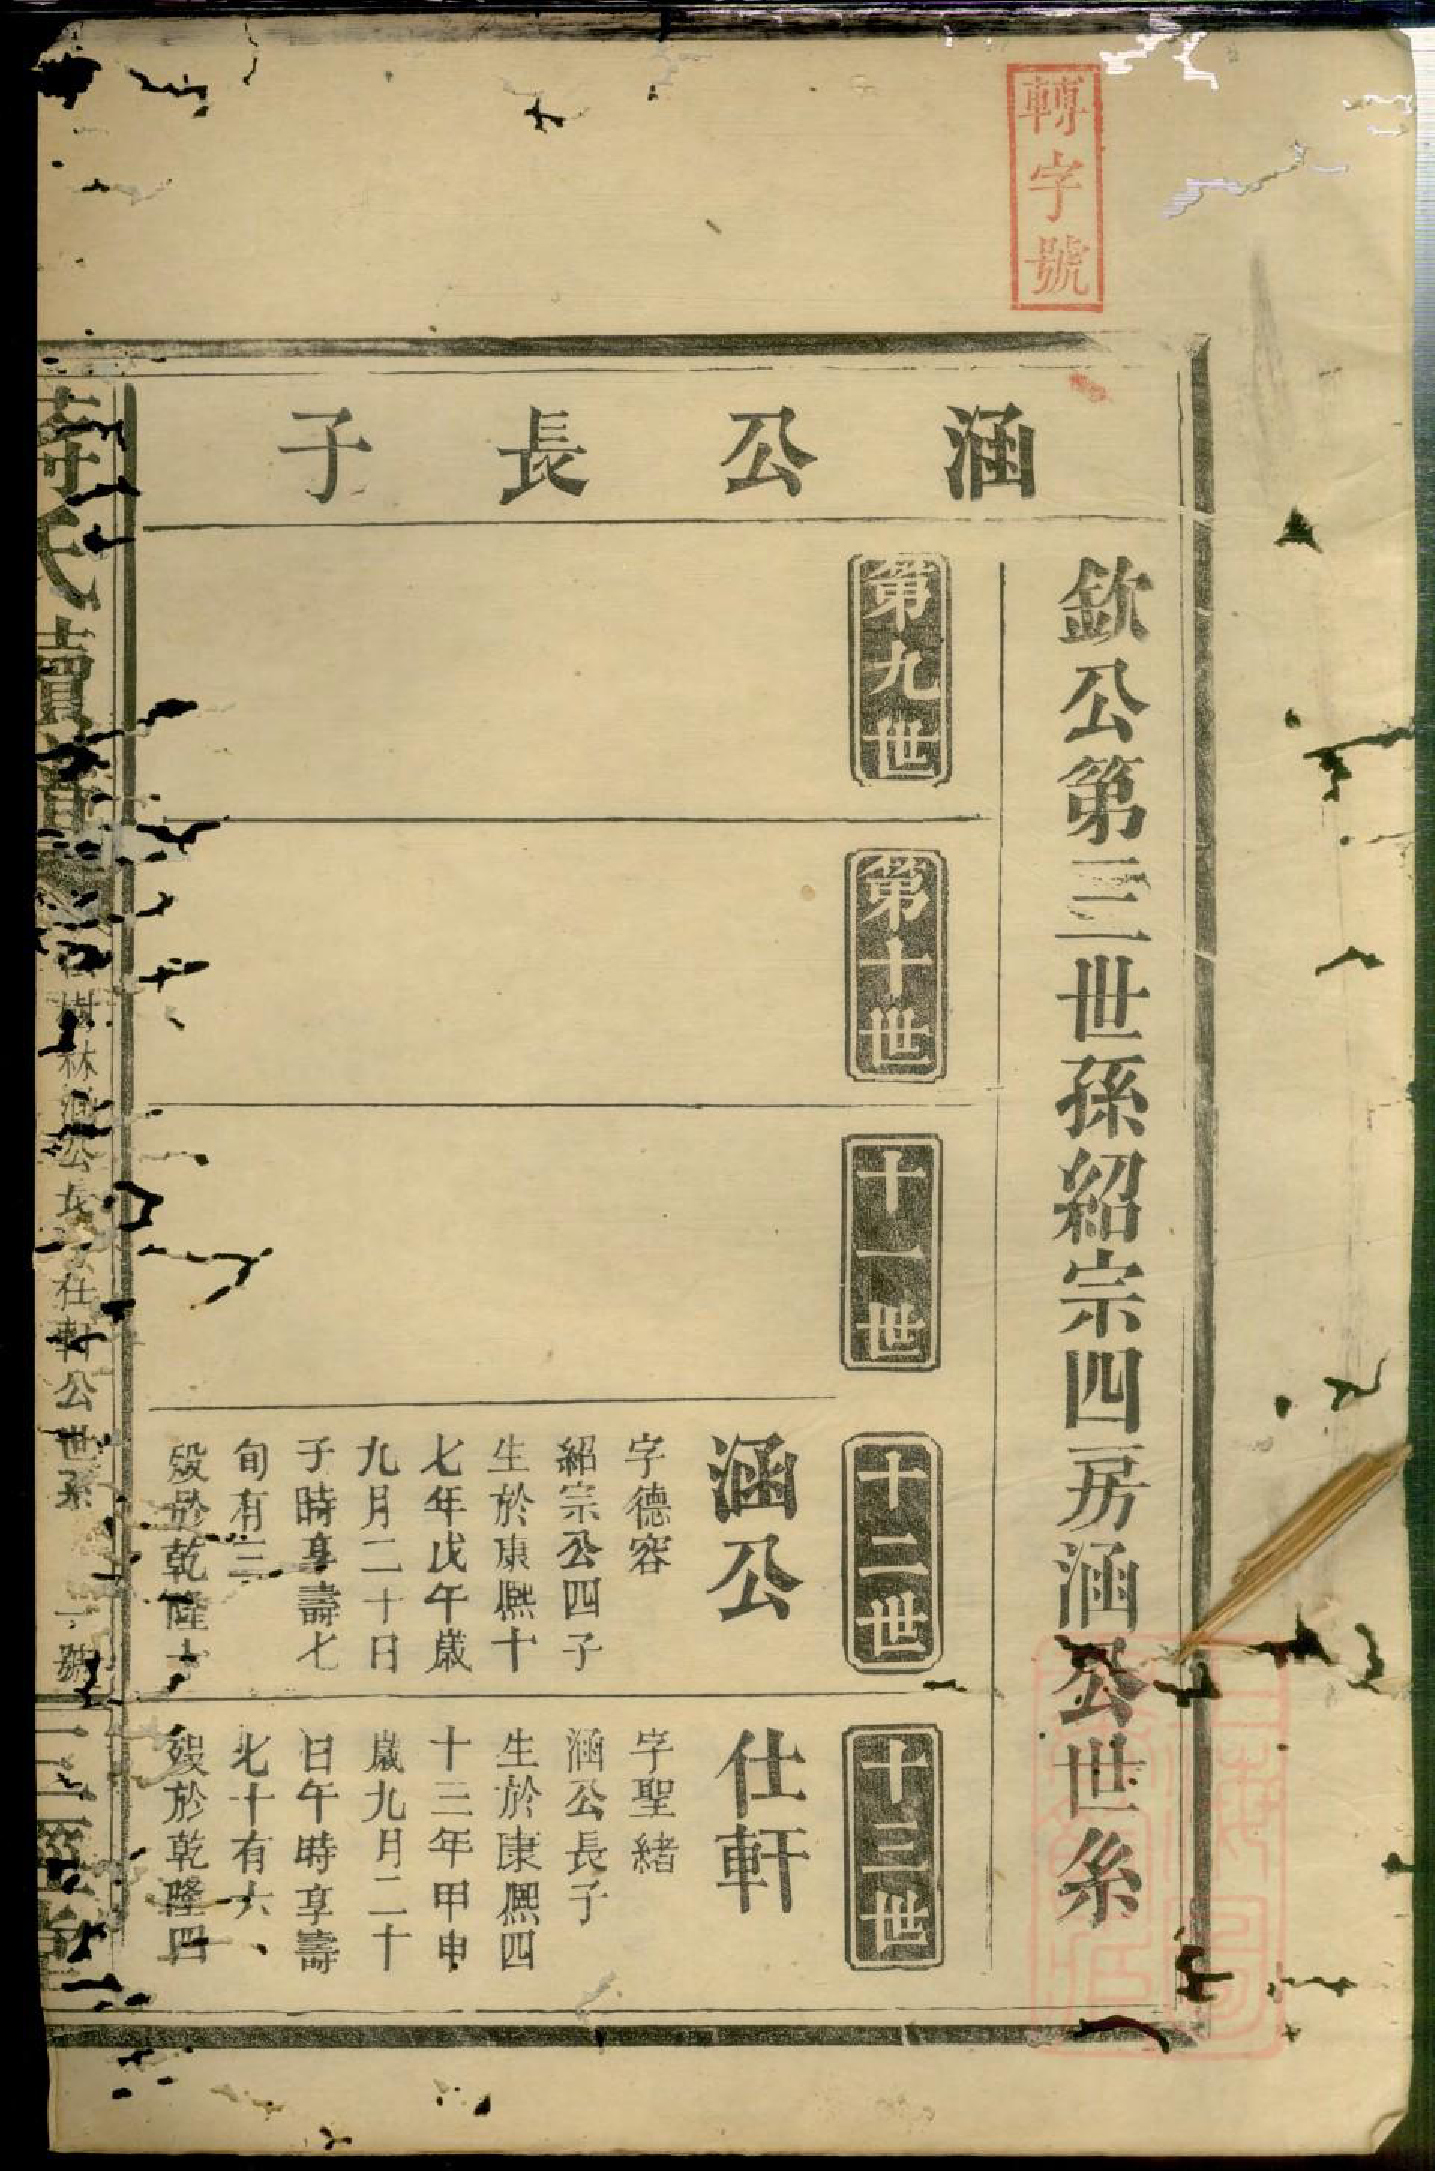 轉字號
涵公長子
欽公第三世孫紹宗四房涵公世系
第九世
第十世
十一世
十二世
涵公
字德容
紹宗公四子
生於康熙十
七年戊午歲
九月二十日
子時享壽七
旬有三
歿於乾隆十
十三世
仕軒
字聖緒
涵公長子
生於康熙四
十三年甲申
歲九月二十
日午時享壽
七十有六
歿於乾隆四
氏續
樹林涵公長 仕軒公世系
一號